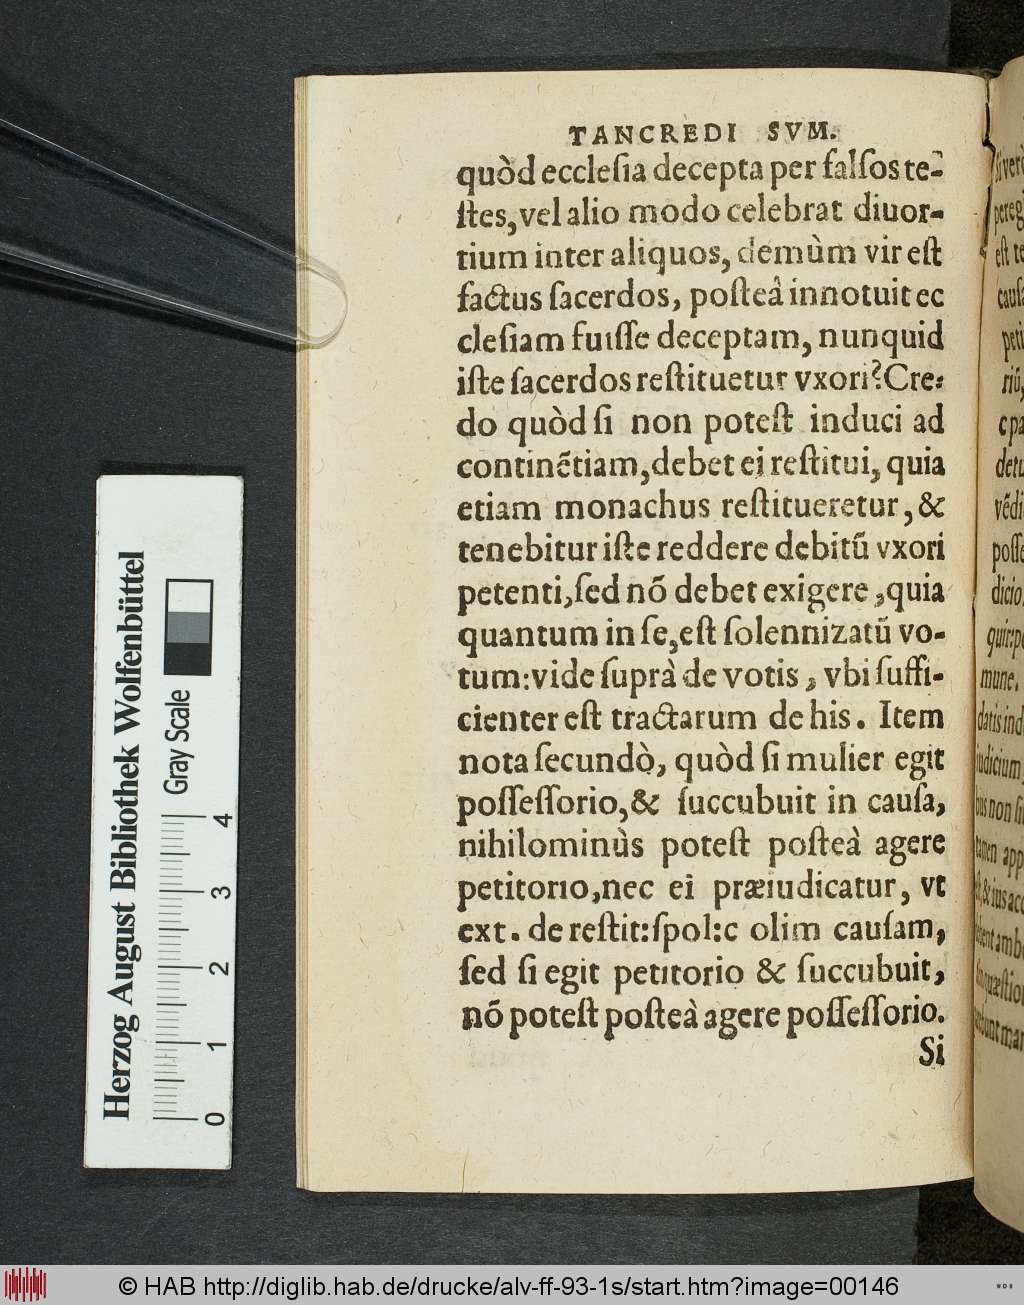 TANCREDI SVM.
quòd ecclesia decepta per falsos te-
stes, vel alio modo celebrat diuor-
tium inter aliquos, demùm vir est
factus sacerdos, posteà innotuit ec
clesiam fuisse deceptam, nunquid
iste sacerdos restituetur vxori? Cre-
do quòd si non potest induci ad
continẽtiam, debet ei restitui, quia
etiam monachus restitueretur, &
tenebitur iste reddere debitũ vxori
petenti, sed nõ debet exigere, quia
quantum in se, est solennizatũ vo-
tum: vide suprà de votis, vbi suffi-
cienter est tractarum de his. Item
nota secundò, quòd si mulier egit
possessorio, & succubuit in causa,
nihilominùs potest posteà agere
petitorio, nec ei præiudicatur, vt
ext. de restit: spol: c olim causam,
sed si egit petitorio & succubuit,
nõ potest posteà agere possessorio.
Si
si verò
pereg
est te
causa
peti
riũ,
c pa
detu
vẽdi
posse
dicio.
quir: pe
mune.
datis ind
iudicium
bus non si
tamen app
& ius acc
ambo
Herzog August Bibliothek Wolfenbüttel
Gray Scale
0 1 2 3 4
© HAB http://diglib.hab.de/drucke/alv-ff-93-1s/start.htm?image=00146